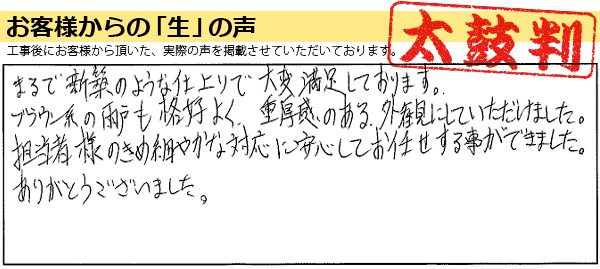 お客様からの「生」の声
太鼓判
工事後にお客様から頂いた、実際の声を掲載させていただいております。
まるで新築のような仕上りで 大変満足しております。
ブラウン系の雨戸も格好よく、重厚感のある、外観にしていただけました。
担当者様のきめ細やかな対応に安心してお任せする事ができました。
ありがとうございました。